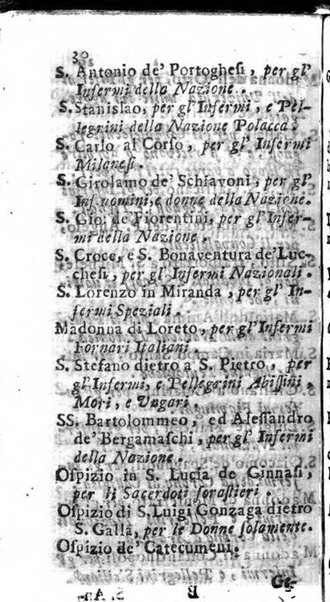 30
S. Antonio de' Portoghesi, per gl'
Infermi della Nazione.
S. Stanislao, per gl'Infermi, e Pel-
legrini della Nazione Polacca.
S. Carlo al Corso, per gl' Infermi
Milanesi.
S. Girolamo de' Schiavoni, per gl'
Inf. uomini, e donne della Nazione.
S. Gio: de'Fiorentini, per gl'Infer-
mi della Nazione.
S. Croce, e S. Bonaventura de'Luc-
chesi, per gl'Infermi Nazionali.
S. Lorenzo in Miranda, per gl' In-
fermi Speziali.
Madonna di Loreto, per gl'Infermi
Fornari Italiani
S. Stefano dietro a S. Pietro, per
gl'Infermi, e Pellegrini Abissini,
Mori, e Ungari.
SS. Bartolommeo, ed Alessandro
de' Bergamaschi, per gl'Infermi
della Nazione.
Ospizio in S. Lucia de Ginnasi,
per li Sacerdoti forastieri.
Ospizio di S. Luigi Gonzaga dietro
S. Galla, per le Donne solamente.
Ospizio de' Catecumeni.
B Ge-